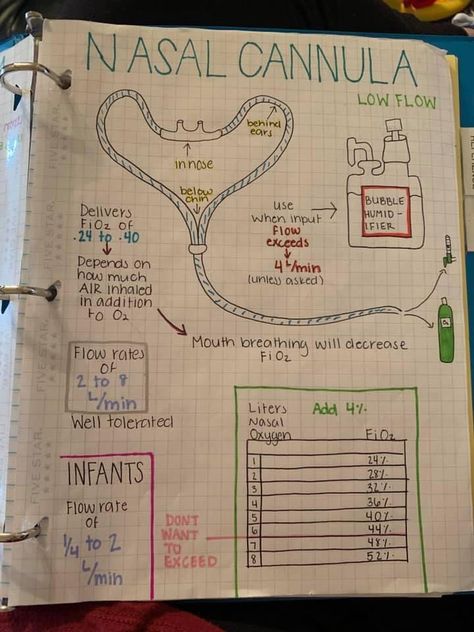 NASAL CANNULA
LOW FLOW
behind
ears
in nose
below
chin
use
when input
flow
exceeds
4 L/min
(unless asked)
BUBBLE
HUMID-
IFIER
Delivers
FiO2 of
.24 to .40
Depends on
how much
AIR inhaled
in addition
to O2
Mouth breathing will decrease
FiO2
Flow rates
of
2 to 8
L/min
Well tolerated
INFANTS
Flow rate
of
1/4 to 2
L/min
DONT
WANT
TO
EXCEED
Liters
Nasal
Oxygen
Add 4%
FiO2
1 24%
2 28%
3 32%
4 36%
5 40%
6 44%
7 48%
8 52%
FIVE STAR
FIVE STAR
FIVE STAR